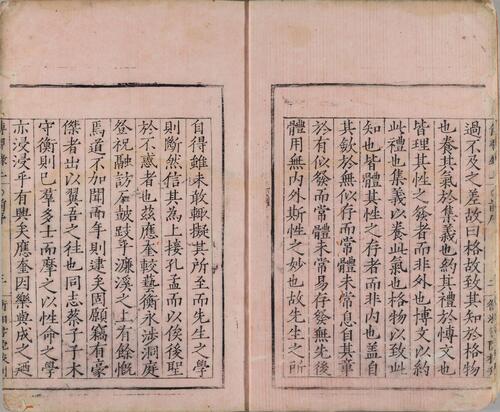 過不及之差故曰格故致其知於格物
也養其氣於集義也約其禮於博文也
皆理其性之發者而非外也博文以約
此禮也集義以養此氣也格物以致此
知也皆體其性之存者而非內也蓋自
其歛於無似存而常體未常息自其章
於有似發而常體未常易存發無先後
體用無內外斯性之妙也故先生之所
自得雖未敢輙擬其所至而先生之學
則斷然信其為上接孔孟而以俟後聖
於不惑者也茲應奎較藝衡永涉洞庭
登祝融訪石皷跂乎濂溪之上有餘慨
焉道不加聞而年則逮矣固願竊有豪
傑者出以翼吾之往也同志蔡子子木
守衡則已羣多士而摩之以性命之學
亦浸浸乎有興矣應奎因樂與成之廼